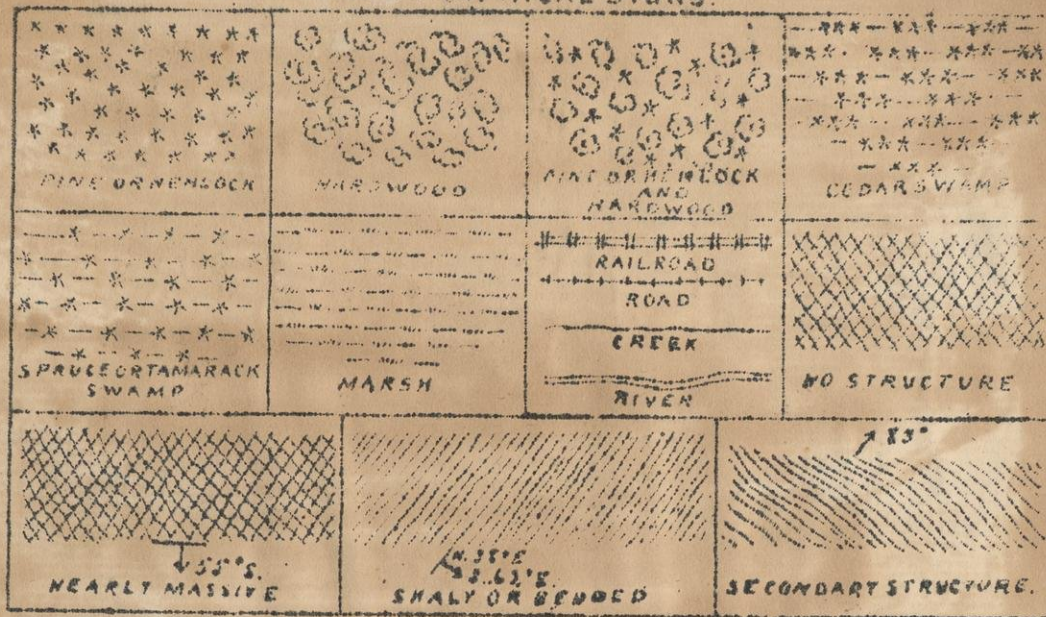 SIGNS.
PINE OR HEMLOCK
HARDWOOD
PINE OR HEMLOCK
AND
HARDWOOD
CEDAR SWAMP
SPRUCE OR TAMARACK
SWAMP
MARSH
RAILROAD
ROAD
CREEK
RIVER
NO STRUCTURE
55°S.
NEARLY MASSIVE
N.35°E
S.65°E.
SHALY OR BEDDED
83°
SECONDARY STRUCTURE.